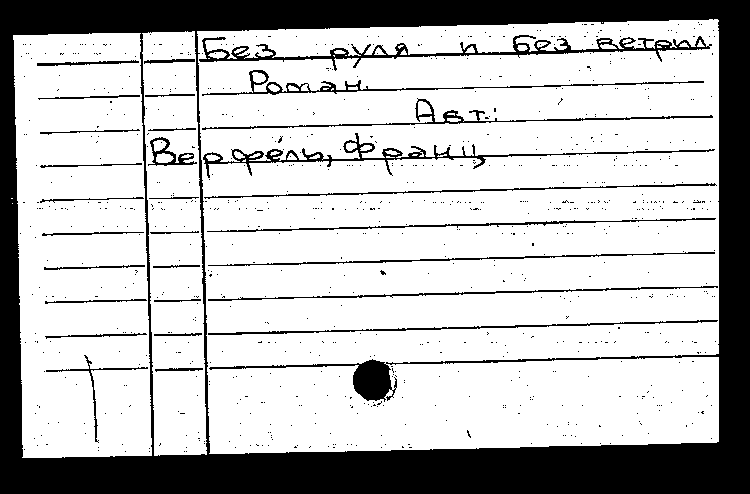 Без руля и без ветрил.
Роман.
Авт.:
Верфель, Франц